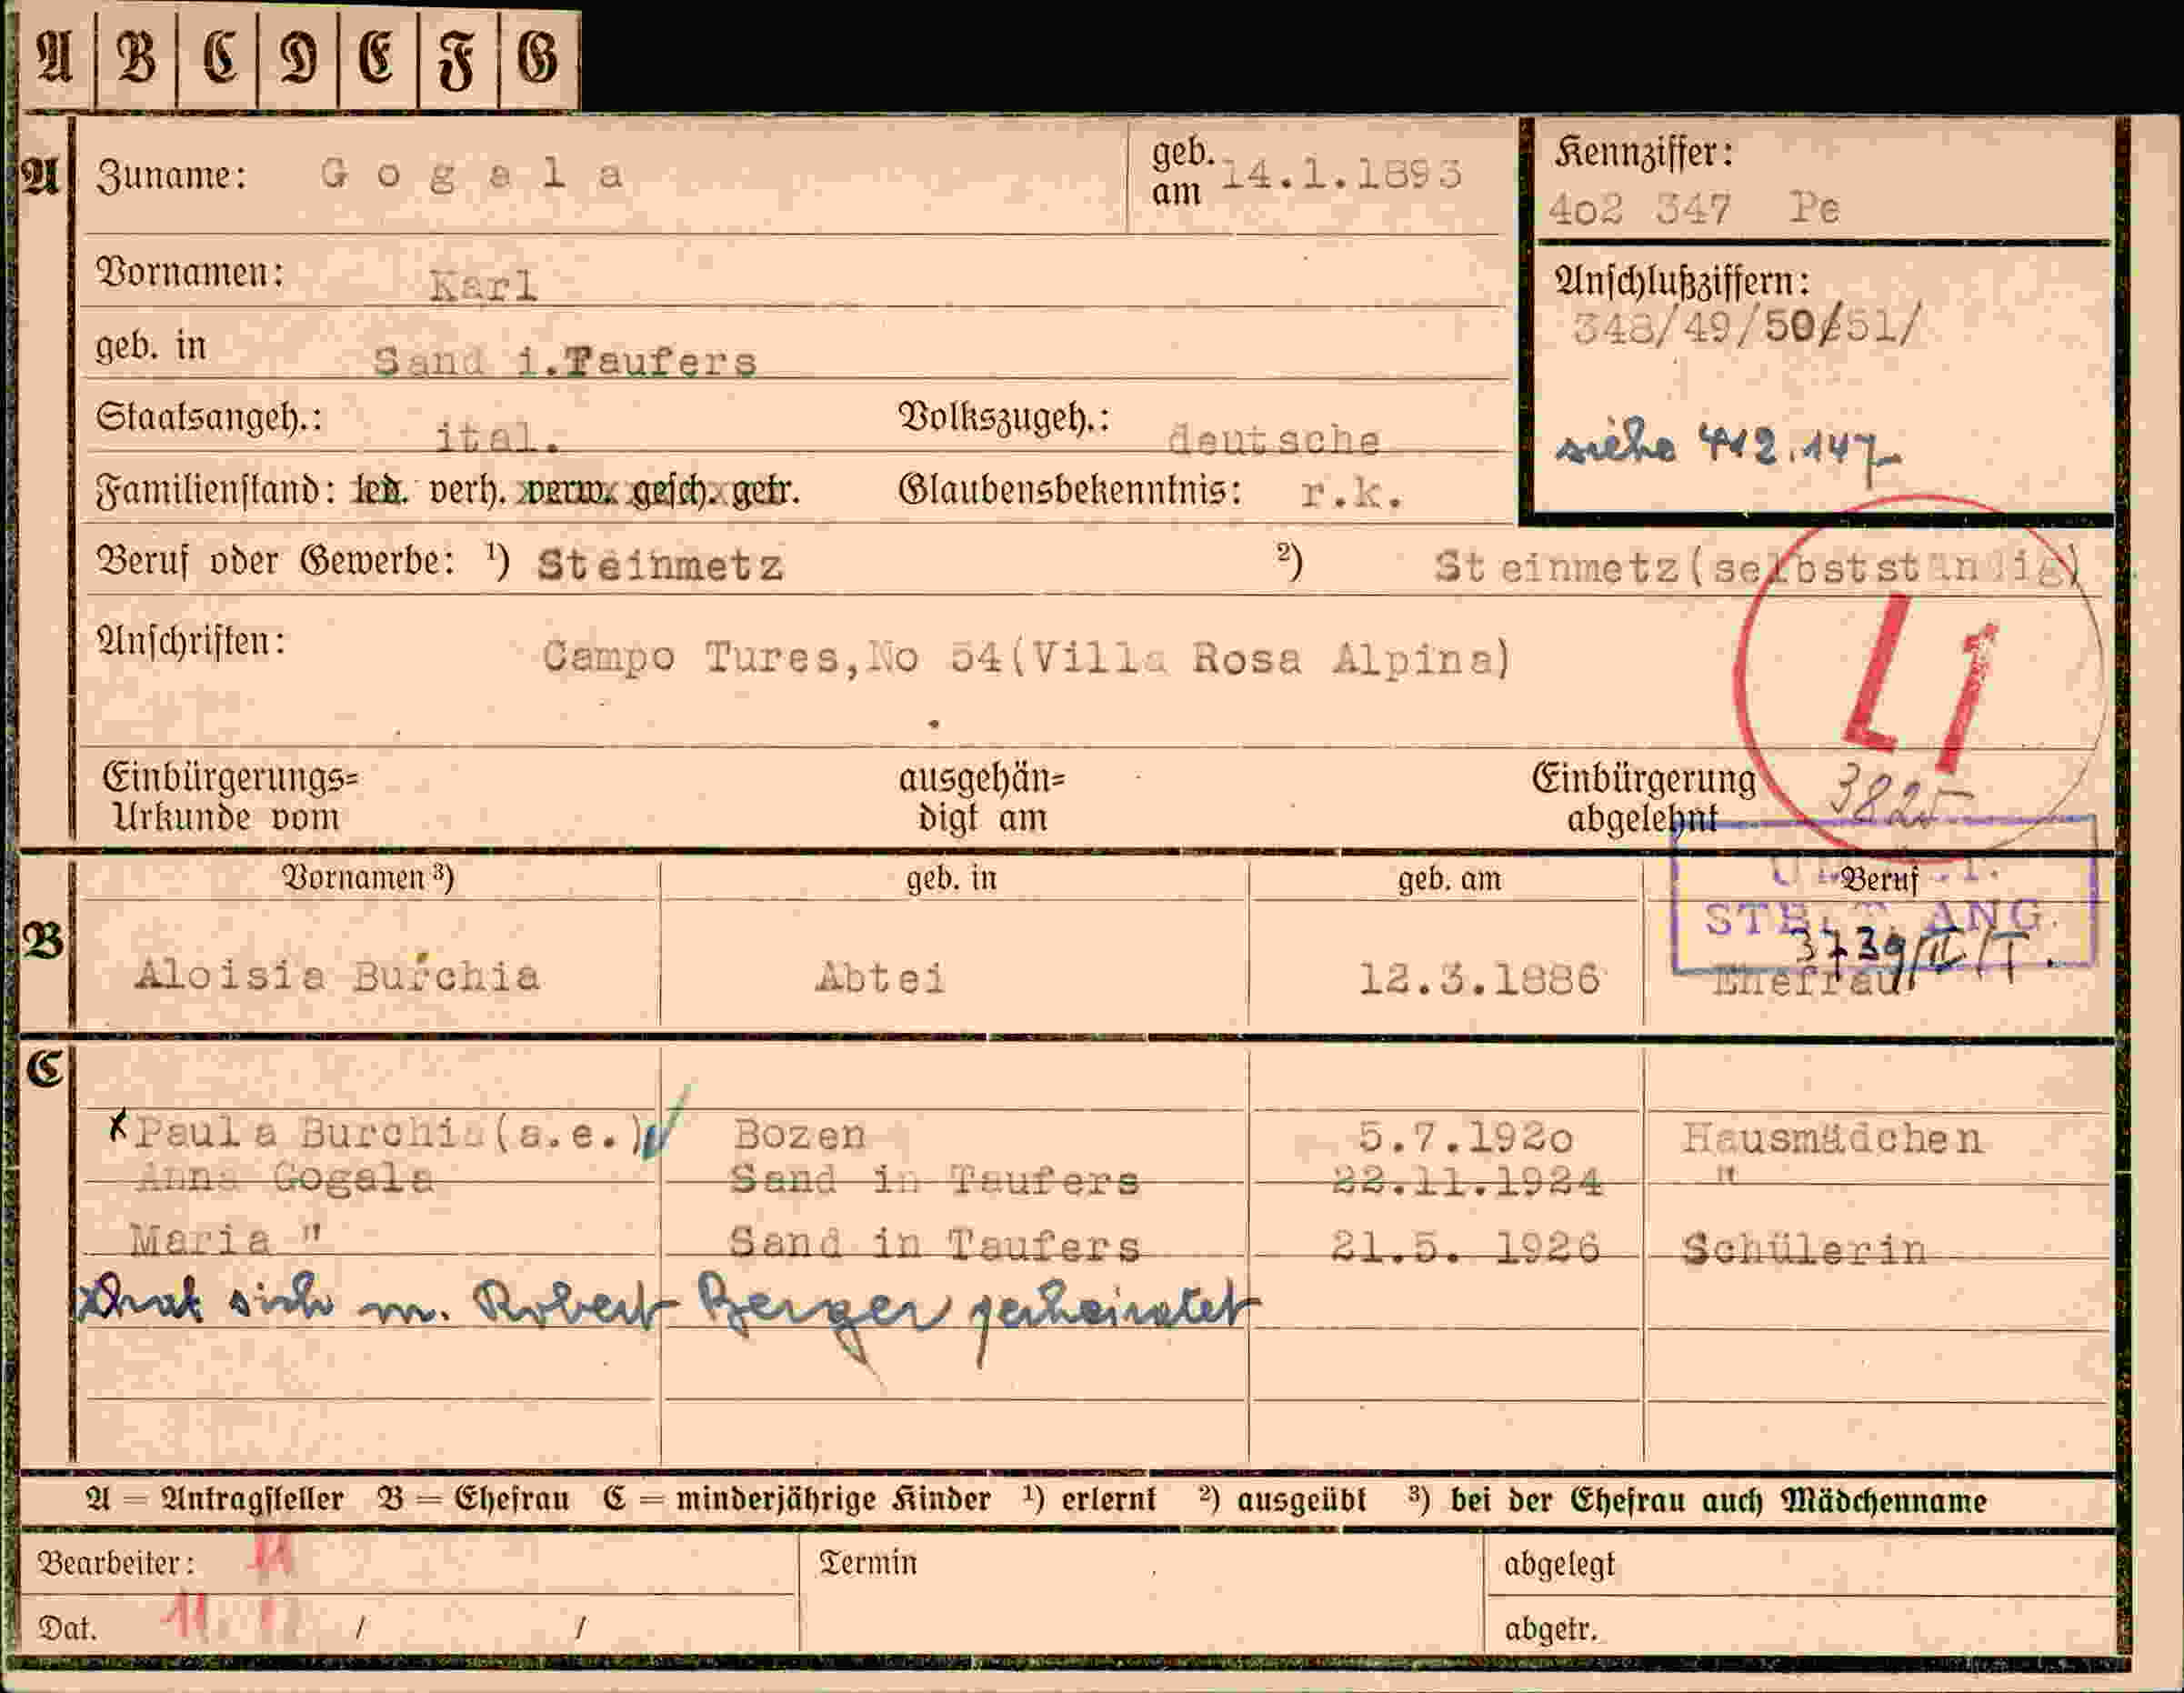 A B C D E F G
A Zuname: Gogala geb. am 14.1.1893
Kennziffer:
4o2 347 Pe
Vornamen: Karl
Anschlußziffern:
348/49/50/51/
geb. in Sand i.Taufers
Staatsangeh.: ital. Volkszugeh.: deutsche
siehe 412.147
Familienstand: led. verh. verw. gesch. getr. Glaubensbekenntnis: r.k.
Beruf oder Gewerbe: 1) Steinmetz 2) Steinmetz(selbstständig)
Anschriften: Campo Tures,No 54(Villa Rosa Alpina)
L1
3825
Einbürgerungs=
Urkunde vom
ausgehän=
digt am
Einbürgerung
abgelehnt
Vornamen 3) geb. in geb. am Beruf
ANG.
3739/II/T.
B Aloisia Burchia Abtei 12.3.1886 Ehefrau
C
x Paula Burchia(a.e.) Bozen 5.7.192o Hausmädchen
Anna Gogala Sand in Taufers 22.11.1924 "
Maria " Sand in Taufers 21.5. 1926 Schülerin
x hat sich m. Robert Berger verheiratet
A = Antragsteller B = Ehefrau C = minderjährige Kinder 1) erlernt 2) ausgeübt 3) bei der Ehefrau auch Mädchenname
Bearbeiter: Termin abgelegt
Dat. 11 / / abgetr.